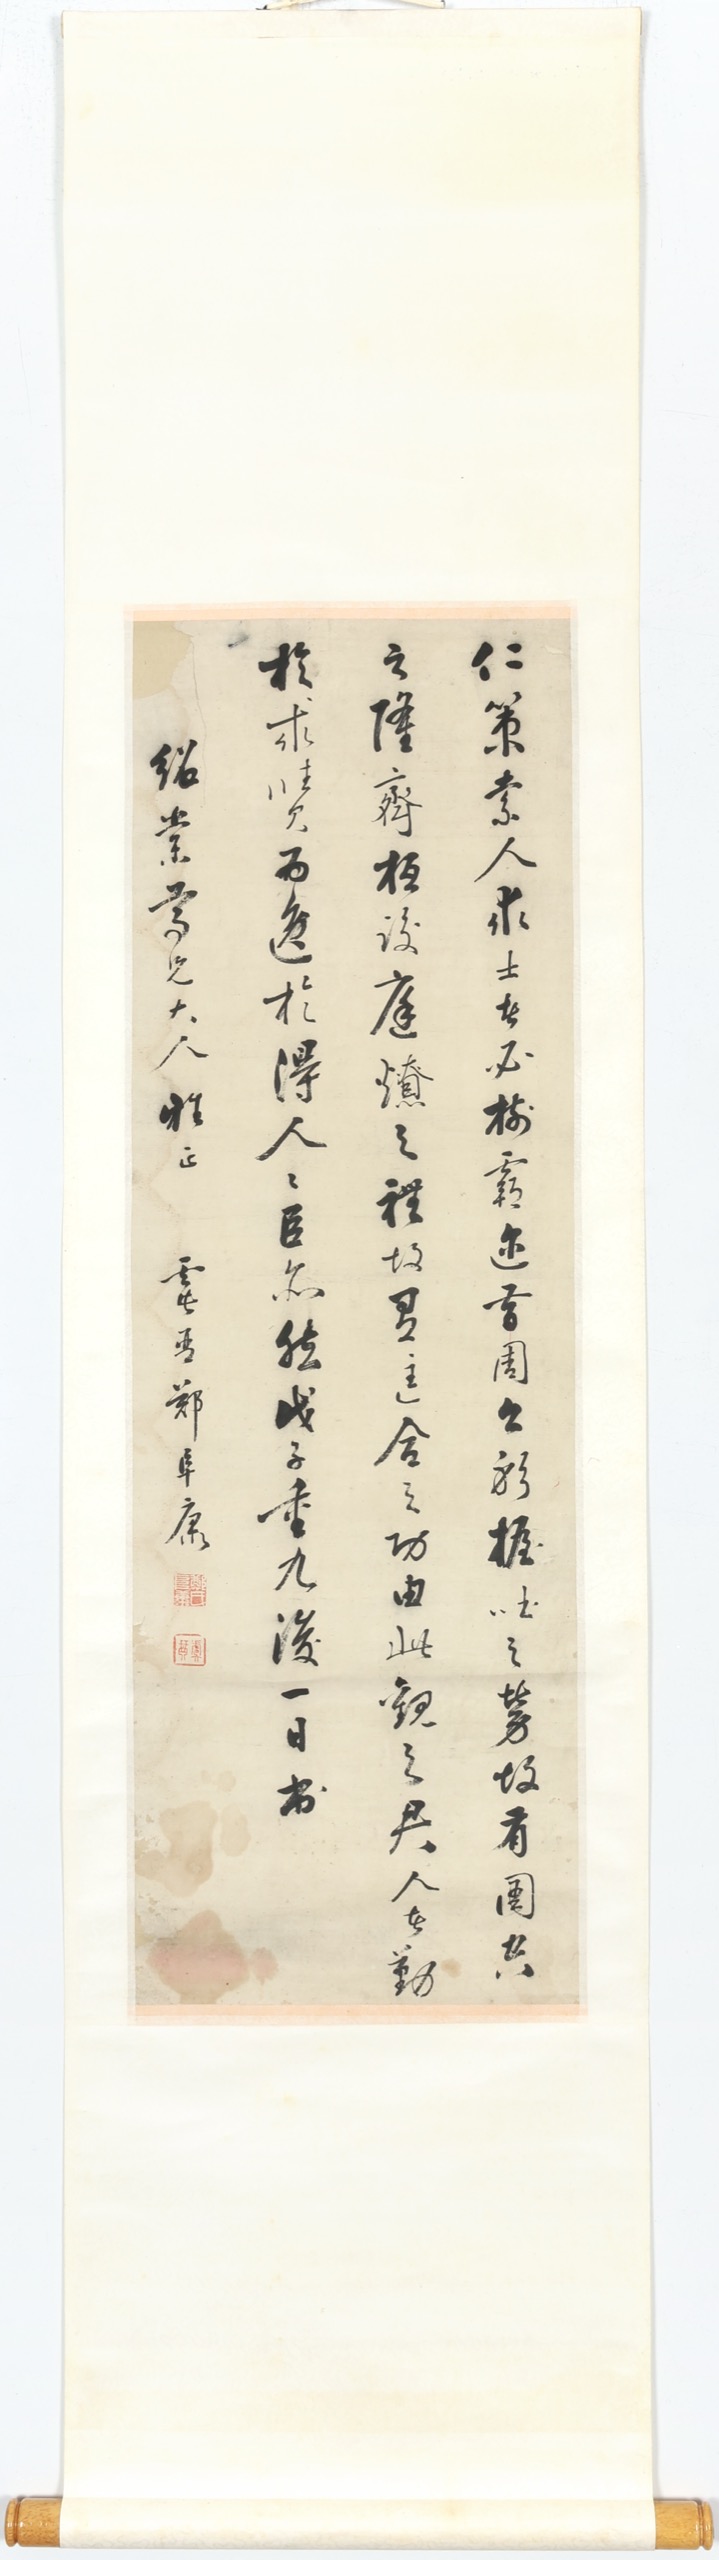 仁策索人求士者必樹霸迹昔周公躬握吐之勞故有圉空
之隆齊桓設庭燎之禮故有匡合之功由此觀之君人者勤
於求賢而逸於得人〻臣亦然戊子重九後一日書
紹業尊兄大人雅正
鄭阜康